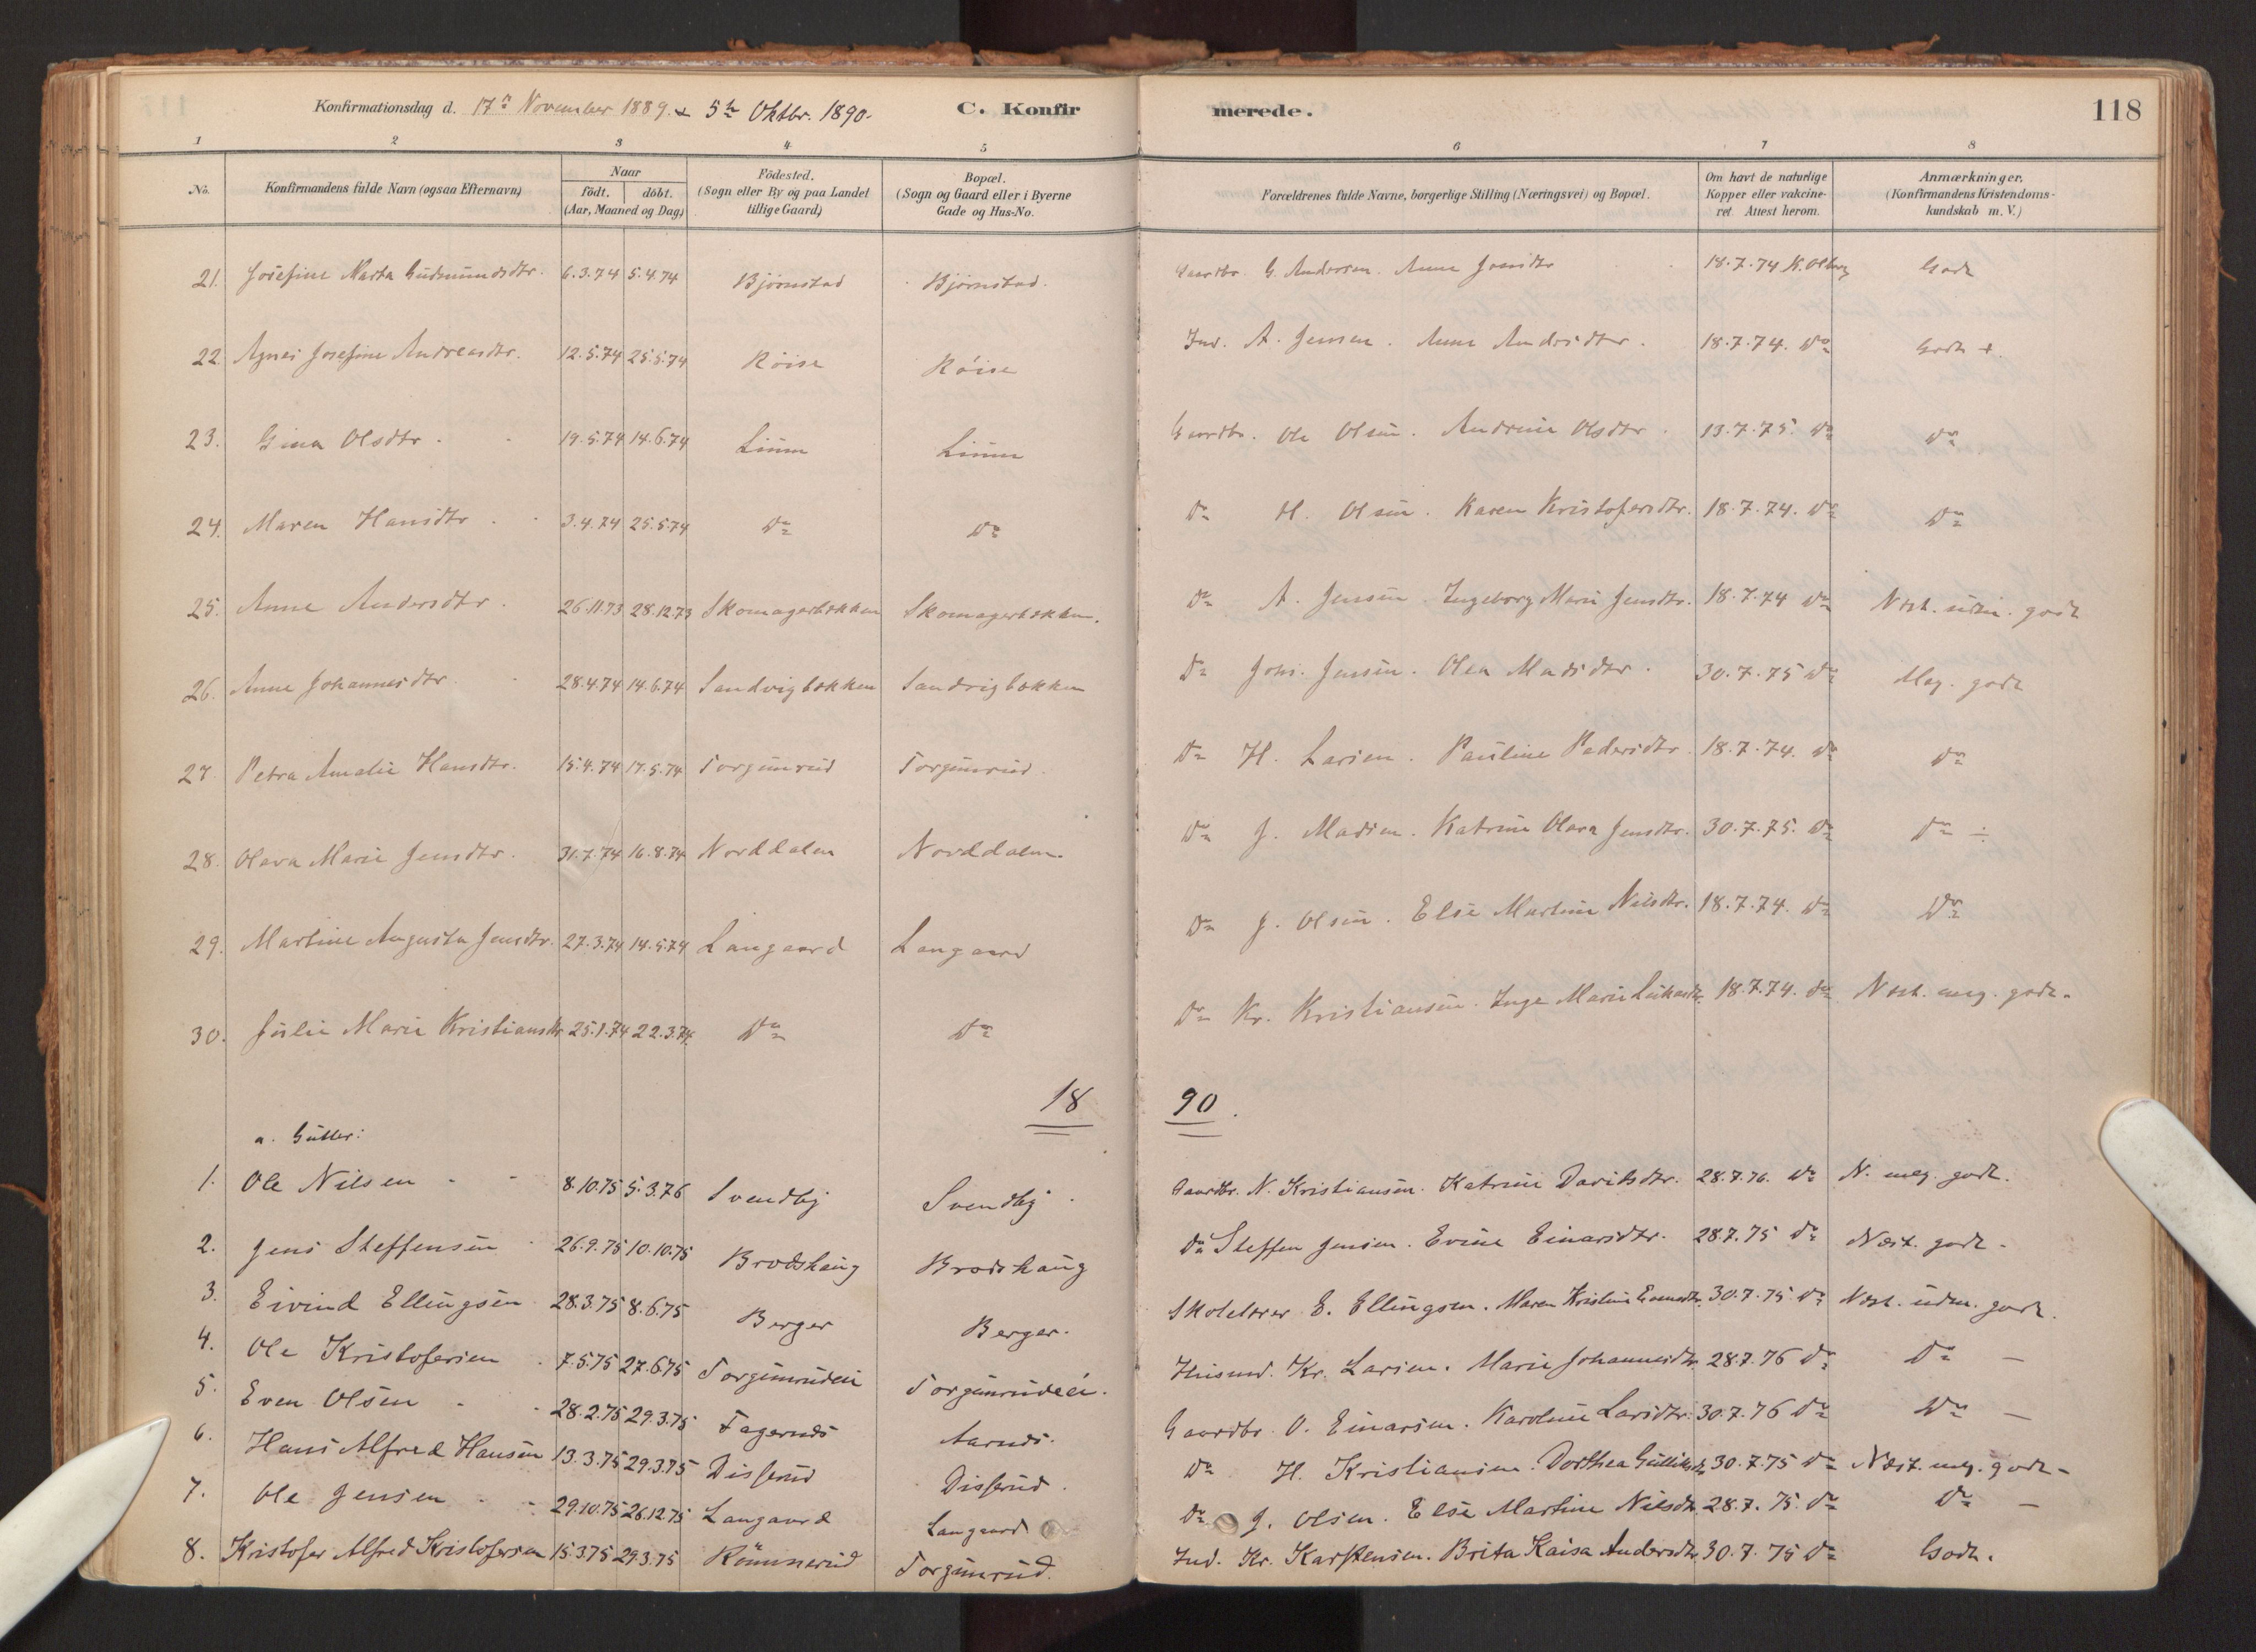 Konfirmationsdag d. 17de November 1889 & 5te Oktbr. 1890.
C. Konfirmerede.
118
1 2 3 4 5 6 7 8
No.
Konfirmandens fulde Navn (ogsaa Efternavn)
Naar
födt. döbt.
(Aar, Maaned og Dag)
Födested.
(Sogn eller By og paa Landet
tillige Gaard)
Bopæl.
(Sogn og Gaard eller i Byerne
Gade og Hus-No.
Forældrenes fulde Navne, borgerlige Stilling (Næringsvei) og Bopæl.
Om havt de naturlige
Kopper eller vakcine-
ret. Attest herom.
Anmærkninger.
(Konfirmandens Kristendoms-
kundskab m. V.)
21. Josefine Marta Gudmundsdtr. 6.3.74 5.4.74 Bjørnstad Bjørnstad. Gaardbr. G. Andersen. Anne Jensdtr 18.7.74 K. Olberg Godt
22. Agnes Josefine Andreasdtr. 12.5.74 25.5.74 Röise Röise Ind. A. Jensen. Anne Andersdtr. 18.7.74. Do Godt +.
23. Gina Olsdtr. 19.5.74 14.6.74 Linnu Linnu Gaardbr. Ole Olsen. Andrine Olsdtr. 13.7.75. Do Do
24. Maren Hansdtr. 3.4.74 25.5.74 Do Do Do H. Olsen. Karen Kristofersdtr. 18.7.74. Do Do
25. Anne Andersdtr. 26.11.73 28.12.73 Skomagerbækken Skomagerbækken. Do A. Jensen Ingeborg Marie Jensdtr. 18.7.74 Do Næst. udm. godt
26. Anne Johannesdtr. 28.4.74 14.6.74 Sandvigbækken Sandvigbækken Do Johs. Jensen. Olea Madsdtr. 30.7.75 Do Meg. godt
27. Petra Amalie Hansdtr. 15.4.74 17.5.74 Torgunrud Torgunrud. Do H. Larsen. Pauline Pedersdtr. 18.7.74. Do Do
28. Olava Marie Jensdtr. 31.7.74 16.8.74 Norddalen Norddalen. Do J. Madsen. Katrine Olava Jensdtr. 30.7.75. Do Do ÷
29. Martine Augusta Jensdtr. 27.3.74 14.5.74 Langaard Langaard Do J. Olsen. Else Martine Nilsdtr. 18.7.74. Do Do
30. Julie Marie Kristiansdtr. 25.1.74 22.3.74. Do Do Do Kr. Kristiansen. Inge Marie 18.7.74. Do Næst. meg. godt.
18 90.
a. Gutter:
1. Ole Nilsen 8.10.75 5.3.76 Svendby Svendby. Gaardbr. N. Kristiansen. Katrine Davidsdtr. 28.7.76. Do N. meg. godt.
2. Jens Steffensen 26.9.75 10.10.75 Brodshaug Brodshaug Do Steffen Jensen. Evine Einarsdtr. 28.7.75 Do Næst. godt.
3. Eivind Ellingsen 28.3.75 8.6.75 Berger Berger. Skolelærer E. Ellingsen. Maren Kristine 30.7.75 Do Næst. udm. godt.
4. Ole Kristofersen 7.5.75 27.6.75 Torgunrudeie Torgunrudeie. Husmd. Kr. Larsen. Marie Johannesdtr. 28.7.76 Do Do —
5. Even Olsen 28.2.75 29.3.75 Fagernæs Aarnæs. Gaardbr. O. Einarsen. Karoline Larsdtr. 30.7.76 Do Do —
6. Hans Alfred Hansen 13.3.75 29.3.75 Disserud Disserud. Do H. Kristiansen. Dorthea Gulliksdtr. 30.7.75 Do Næst. meg. godt.
7. Ole Jensen 29.10.75 26.12.75 Langaard Langaard Do J. Olsen. Else Martine Nilsdtr. 28.7.75. Do Do —
8. Kristofer Alfred Kristofersen 15.3.75 29.3.75 Römmerud Torgunrud. Ind. Kr. Karstensen. Brita Kaisa Andersdtr. 30.7.75 Do Godt.